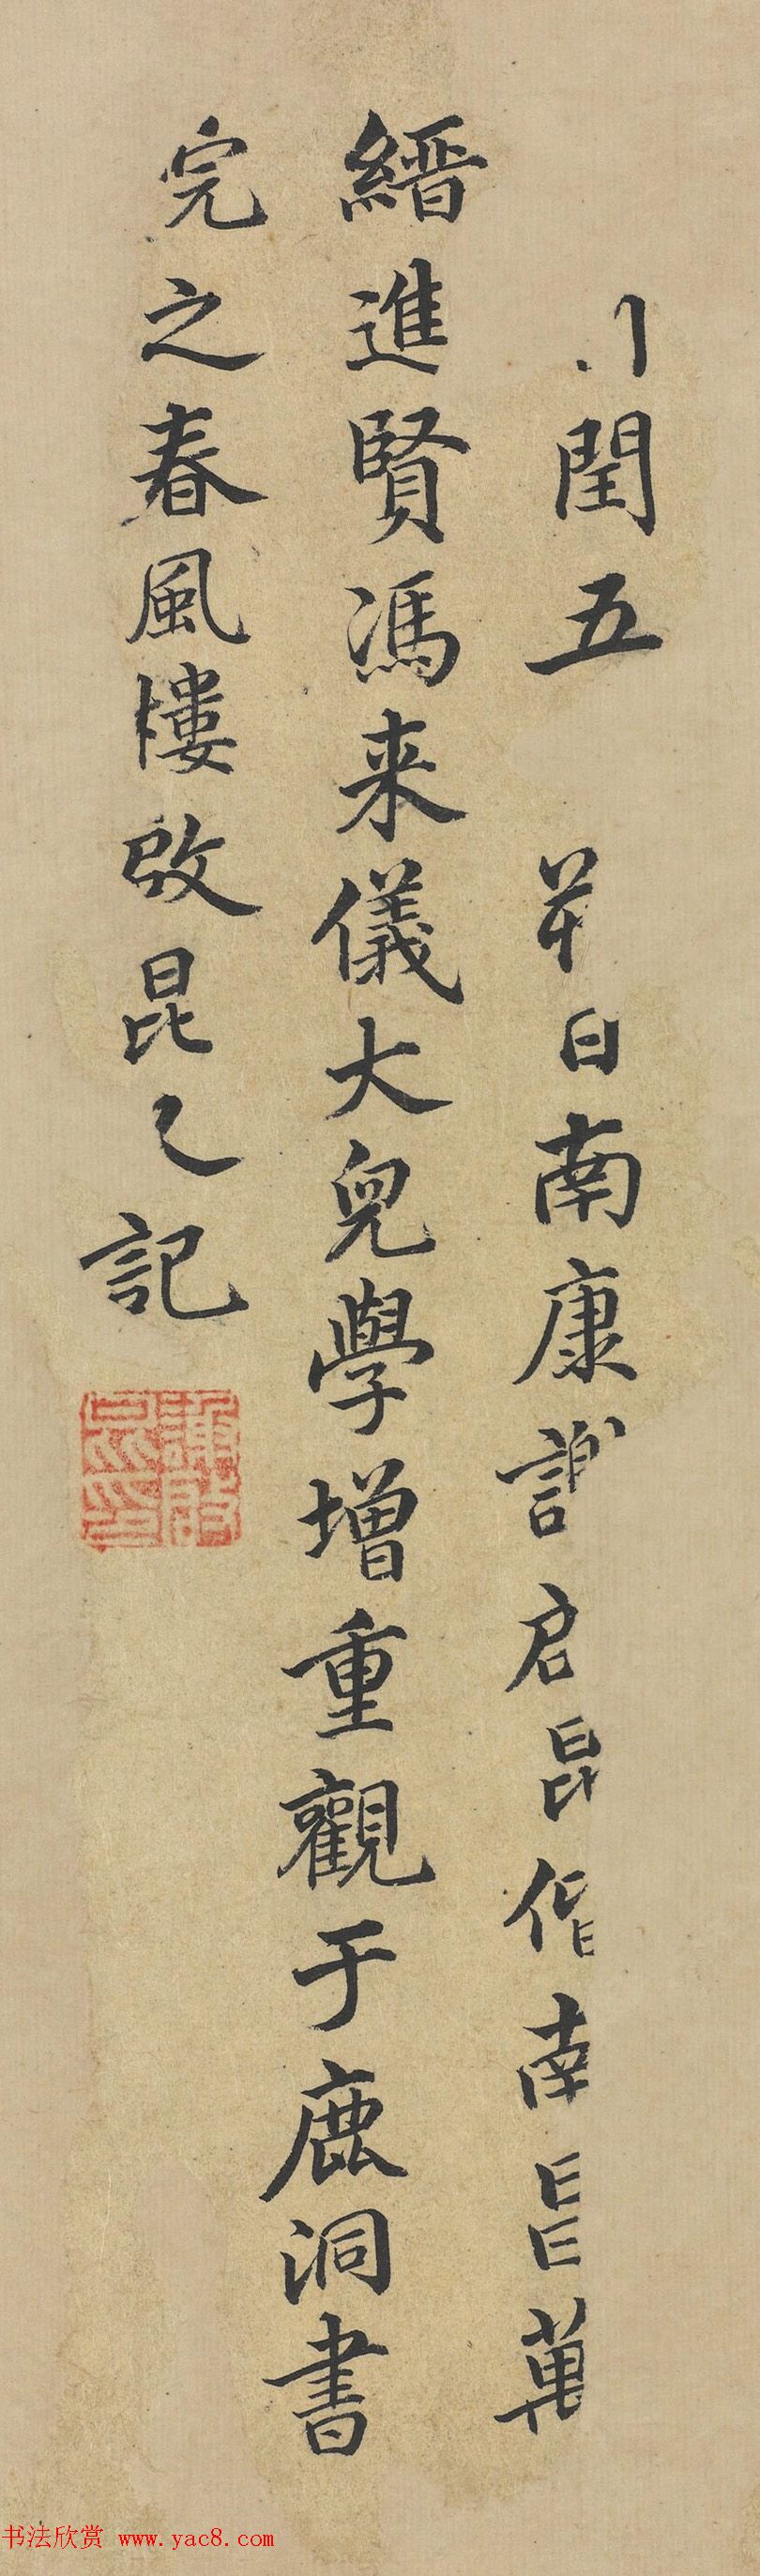 閏五 日南康謝启昆偕南昌萬
縉進賢馮来儀大兒學增重觀于鹿洞書
完之春風樓啟昆又記
书法欣赏 www.yac8.com